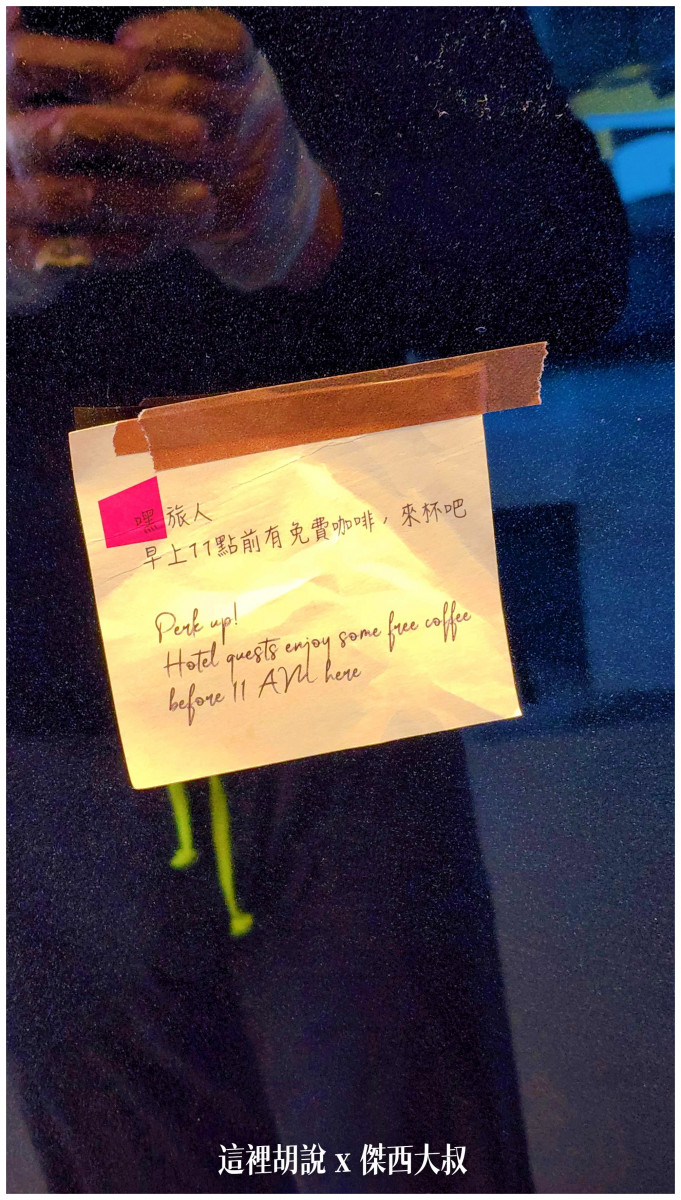 嘿 旅人
早上11點前有免費咖啡，來杯吧
Perk up!
Hotel guests enjoy some free coffee
before 11 AM here
這裡胡說 x 傑西大叔